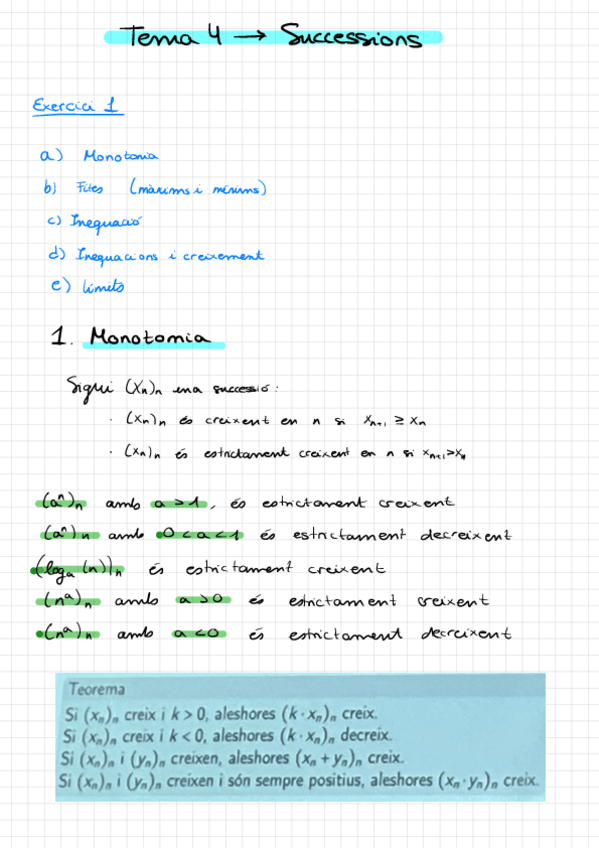 Tema 4 → Successions
Exercici 1
a) Monotonia
b) Fites (màxims i mínims)
c) Inequació
d) Inequacions i creixement
e) límits
1. Monotomia
Sigui (Xn)n una successió:
· (xn)n és creixent en n si xn+1 ≥ xn
· (xn)n és estrictament creixent en n si xn+1>xn
(aⁿ)n amb a>1, és estrictament creixent
(aⁿ)n amb 0<a<1 és estrictament decreixent
(loga (n))n és estrictament creixent
(nᵃ)n amb a>0 és estrictament creixent
(nᵃ)n amb a<0 és estrictament decreixent
Teorema
Si (xn)n creix i k > 0, aleshores (k · xn)n creix.
Si (xn)n creix i k < 0, aleshores (k · xn)n decreix.
Si (xn)n i (yn)n creixen, aleshores (xn + yn)n creix.
Si (xn)n i (yn)n creixen i són sempre positius, aleshores (xn · yn)n creix.